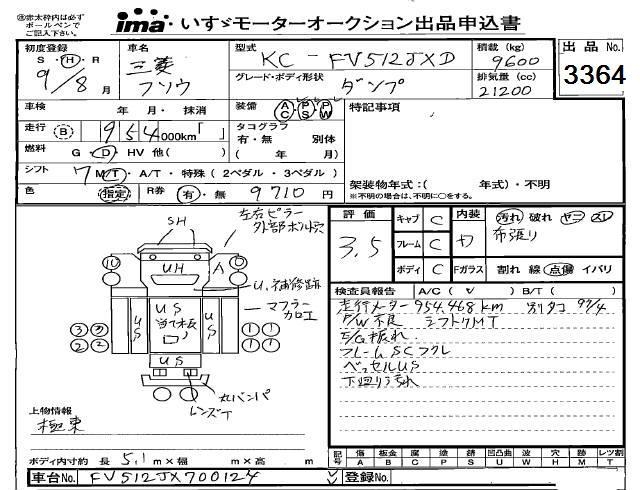 ㊟赤太枠内は必ず
ボールペンで
ご記入下さい。
ima いすゞモーターオークション出品申込書
初度登録
S・H・R
9/8月
車名
三菱
フソウ
型式
KC-FV512JXD
グレード・ボディ形状
ダンプ
積載(kg)
9600
排気量(cc)
21200
出品No.
3364
車検 年 月・ 抹消
装備 AC PS PW
特記事項
走行 B 954,000km「 」
タコグラフ
有・無 別体
( 年 月)
燃料 G・D・HV 他( )
シフト 7 M/T・A/T・特殊(2ペダル・3ペダル)
色 指定 R券 有・無 9710円
架装物年式:( 年式)・不明
※不明の場合は、不明に○をする。
評価 3.5
キャブ C
フレーム C
ボディ C
内装
Fガラス
汚れ 破れ ヤニ スレ
布張り
割れ 線 点傷 イバリ
検査員報告 A/C( V ) B/T( )
走行メーター954,468km 別タコ 97/4
P/W不良 シフト7MT
E/G振れ
フレームSCフクレ
ベッセルUS
下廻りされ
左右ピラー
外部ボルト穴
SH
UH
A
U,補修跡
マフラー
加工
US
US
当て板
US
US
丸バンパ
レンズT
上物情報
極東
ボディ内寸約 長 5.1m×幅 m×高 m
記号
傷 板金 腐 塗 錆 凹凸曲 波 穴 跡 レツ割
A B C P S U W H M T
車台No. FV512JX700124
登録No.